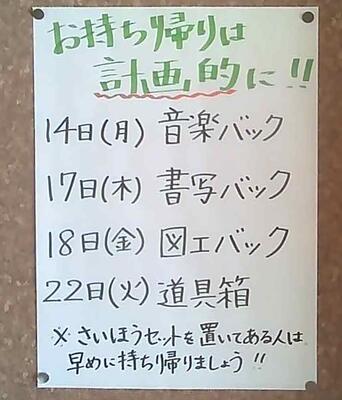 お持ち帰りは
計画的に!!
14日(月) 音楽バック
17日(木) 書写バック
18日(金) 図工バック
22日(火) 道具箱
※さいほうセットを置いてある人は
早めに持ち帰りましょう!!